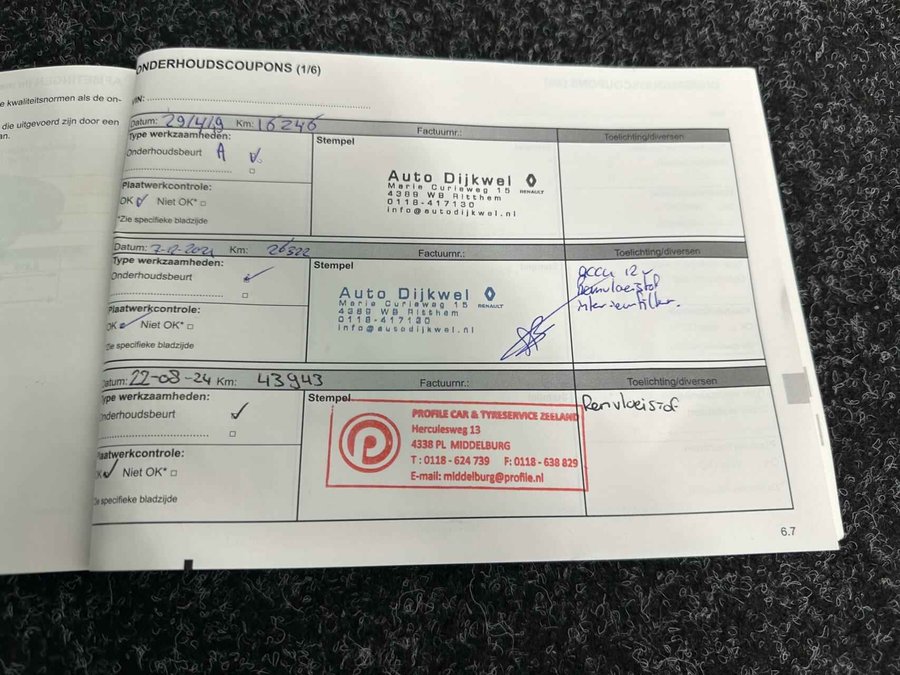 e kwaliteitsnormen als de on-
die uitgevoerd zijn door een
an.
ONDERHOUDSCOUPONS (1/6)
VIN:
Datum: 29/4/19 Km: 16246 Factuurnr.: Toelichting/diversen
Type werkzaamheden:
Onderhoudsbeurt A
Plaatwerkcontrole:
OK Niet OK*
*Zie specifieke bladzijde
Stempel
Auto Dijkwel
RENAULT
Marie Curieweg 15
4389 WB Ritthem
0118-417130
info@autodijkwel.nl
Datum: 7-12-2021 Km: 26322 Factuurnr.: Toelichting/diversen
Type werkzaamheden:
Onderhoudsbeurt
Plaatwerkcontrole:
OK Niet OK*
Zie specifieke bladzijde
Stempel
Auto Dijkwel
RENAULT
Marie Curieweg 15
4389 WB Ritthem
0118-417130
info@autodijkwel.nl
accu 12v
Remvloeistof
interieurfilter.
Datum: 22-08-24 Km: 43943 Factuurnr.: Toelichting/diversen
Type werkzaamheden:
Onderhoudsbeurt
Plaatwerkcontrole:
OK Niet OK*
Zie specifieke bladzijde
Stempel
PROFILE CAR & TYRESERVICE ZEELAND
Herculesweg 13
4338 PL MIDDELBURG
T : 0118 - 624 739 F: 0118 - 638 829
E-mail: middelburg@profile.nl
Remvloeistof
6.7